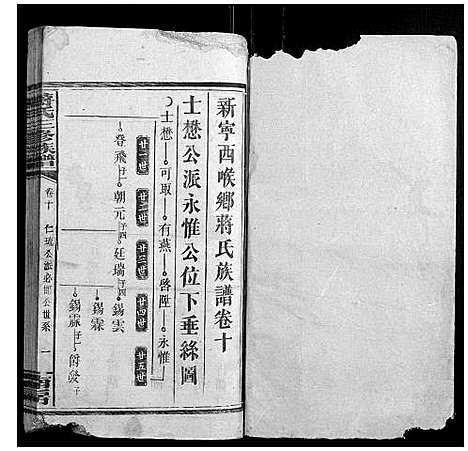 新寧西喉鄉蔣氏族譜卷十
士懋公派永惟公位下垂絲圖
士懋 可取 有燕 啓陞 永惟
廿一世 廿二世 廿三世 廿四世 廿五世
登飛 子一 朝元 子四 廷瑞 子四 錫雲
錫霖
錫霖 子一
蔣氏三修族譜
卷十 仁 公派必 公世系 一